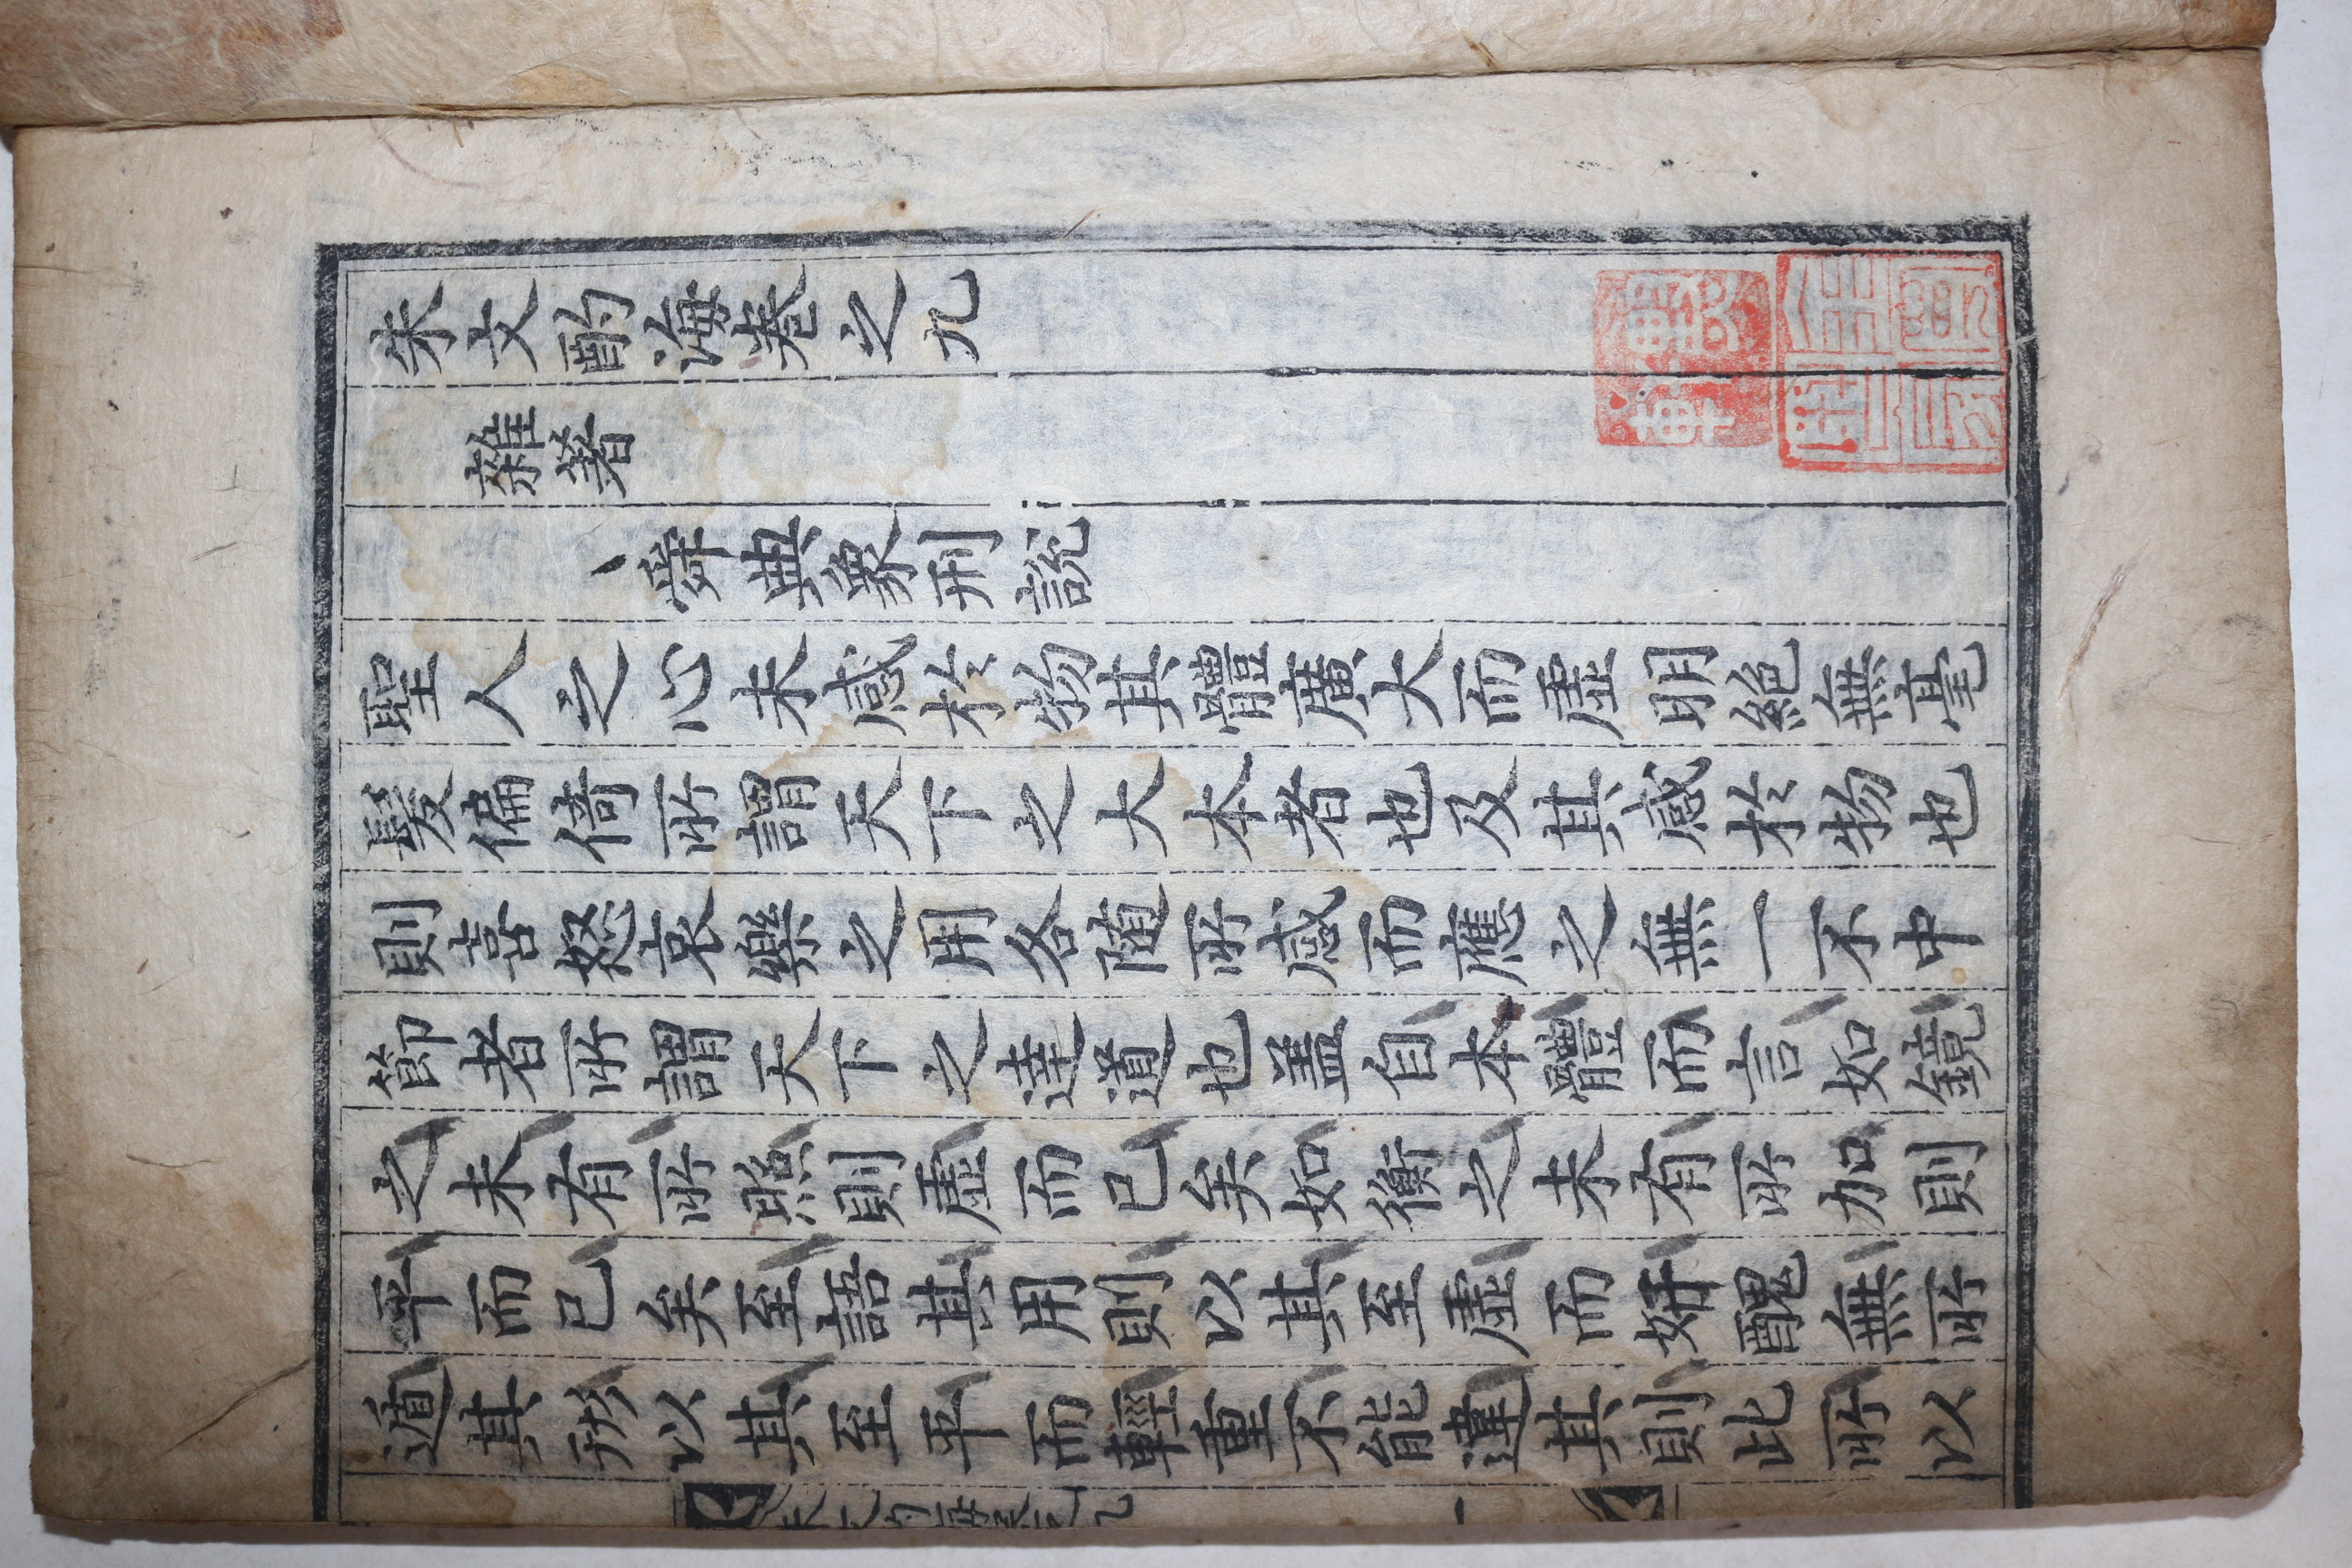 朱文酌海卷之九
雜著
舜典象刑說
聖人之心未感於物其體廣大而虛明絶無毫
髮偏倚所謂天下之大本者也及其感於物也
則喜怒哀樂之用各隨所感而應之無一不中
節者所謂天下之達道也盖自本體而言如鏡
之未有所照則虛而已矣如衡之未有所加則
平而已矣至語其用則以其至虛而好醜無所
遁其形以其至平而輕重不能違其則此所以
朱文酌海卷之九 一